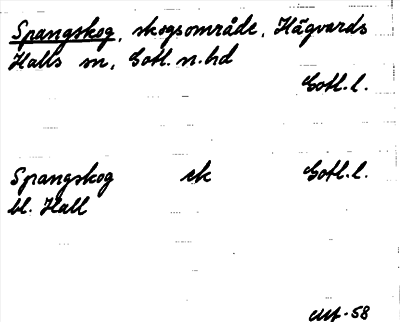 Spangskog, skogsområde, Hägvards
Halls sn, Gotl. n. hd
Gotl. l.
Spangskog ek Gotl. l.
bl. Hall
-58